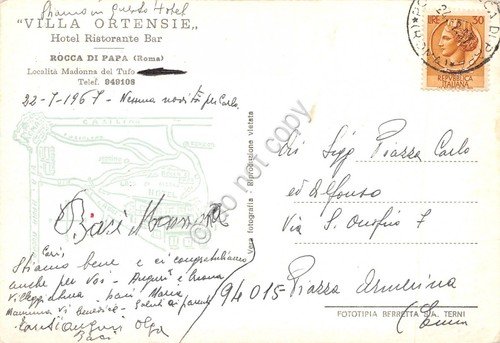 Stiamo in questo Hotel
"VILLA ORTENSIE„
Hotel Ristorante Bar
ROCCA DI PAPA (Roma)
Località Madonna del Tufo
Telef. 949108
22-7-1967 - Nessuna novità per Carlo
CASILINA
Baci Mamma
Cari
Stiamo bene e ci congratuliamo
anche per voi - Auguri e buona
Villeggiatura - baci Maria
Mamma Vi benedice - Saluti ai parenti
Tanti auguri Olga
Baci
Vera fotografia - Riproduzione vietata
do not copy
LIRE 30
REPVBBLICA
ITALIANA
ROCCA DI PAPA
Sigg Piazza Carlo
ed Alfonso
Via S. Onofrio 7
94015 Piazza Armerina
(Enna)
FOTOTIPIA BERRETTA S.A. TERNI